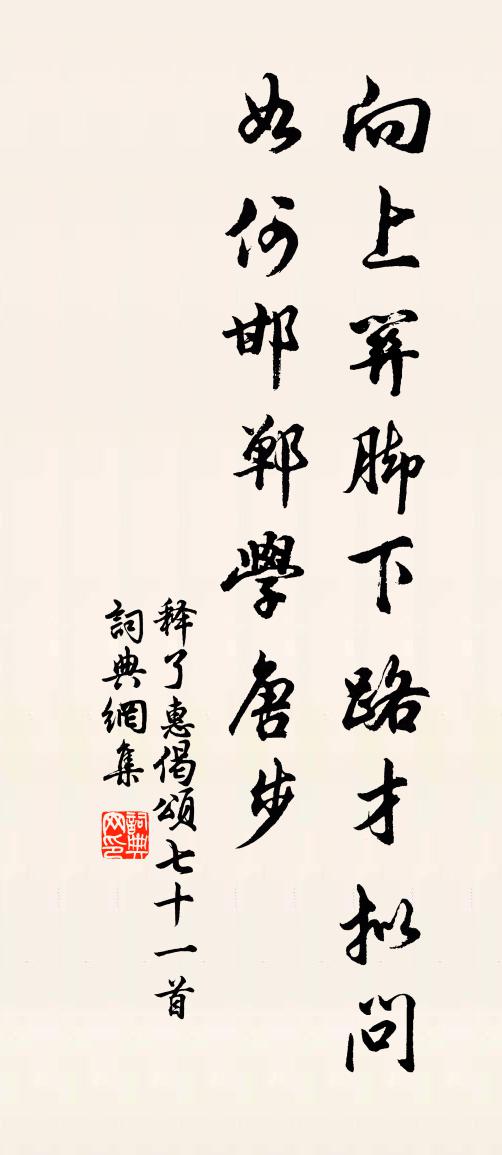 向上關脚下路才拟問
如何邯鄲學唐步
释了惠偈頌七十一首
詞典網集
詞典网印